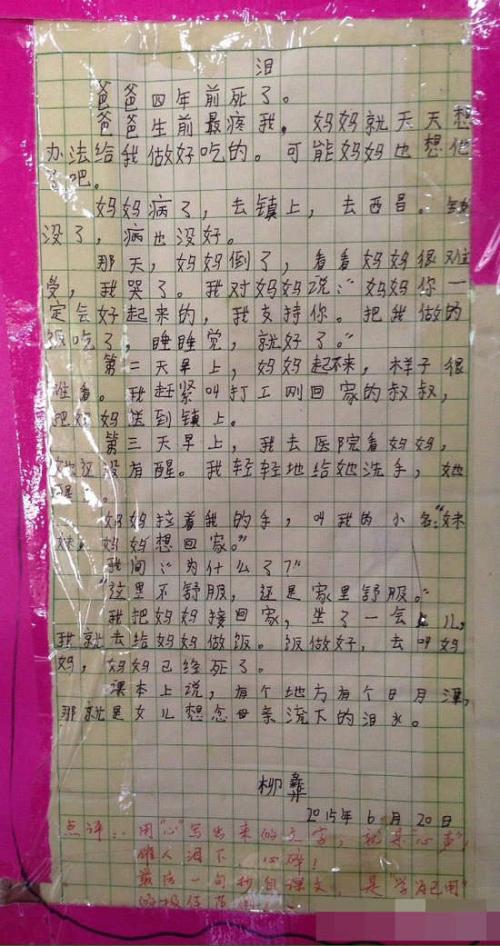 泪
爸爸四年前死了。
爸爸生前最疼我，妈妈就天天想
办法给我做好吃的。可能妈妈也想他
了吧。
妈妈病了，去镇上，去西昌，钱
没了，病也没好。
那天，妈妈倒了，看看妈妈很难
受，我哭了。我对妈妈说：“妈妈你一
定会好起来的，我支持你。把我做的
饭吃了，睡睡觉，就好了。”
第二天早上，妈妈起不来，样子很
难看。我赶紧叫打工刚回家的叔叔，
把妈妈送到镇上。
第三天早上，我去医院看妈妈，
她还没有醒。我轻轻地给她洗手，她
醒了。
妈妈拉着我的手，叫我的小名：“妹
妹，妈妈想回家。”
我问：“为什么了？”
“这里不舒服，还是家里舒服。”
我把妈妈接回家，坐了一会儿，
我就去给妈妈做饭。饭做好，去叫妈
妈，妈妈已经死了。
课本上说，有个地方有个日月潭，
那就是女儿想念母亲流下的泪水。
柳彝
2015年6月20日
点评：用“心”写出来的文字，就是“心声”，
催人泪下，心碎！
最后一句抄自课文，是“学为己用”
的